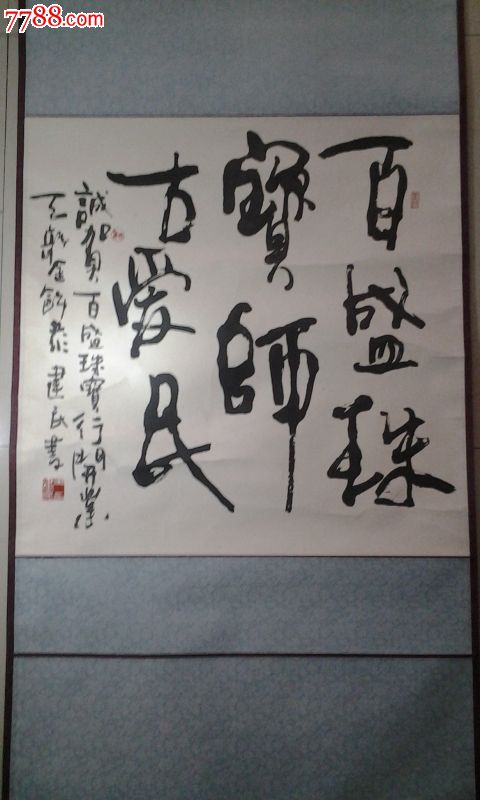 7788.com
百盛珠
寶師
古愛民
誠賀百盛珠寶行開業
金飾 建民書